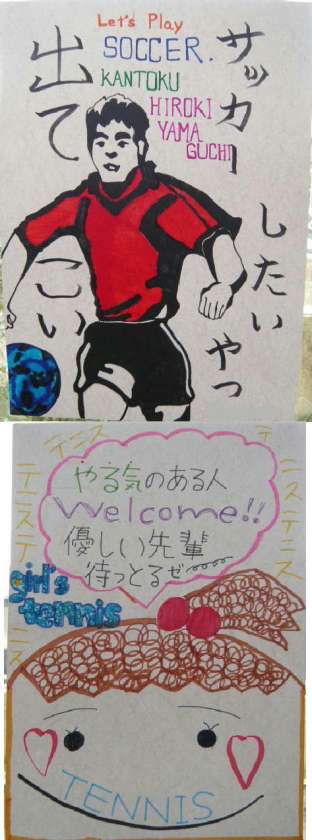 Let's Play
SOCCER.
KANTOKU
HIROKI
YAMA
GUCHI
サッカー
したい やつ
出て
こい
テニス
テニステニス
テニステニス
やる気のある人
Welcome!!
優しい先輩
待っとるぜ
girl's
tennis
TENNIS